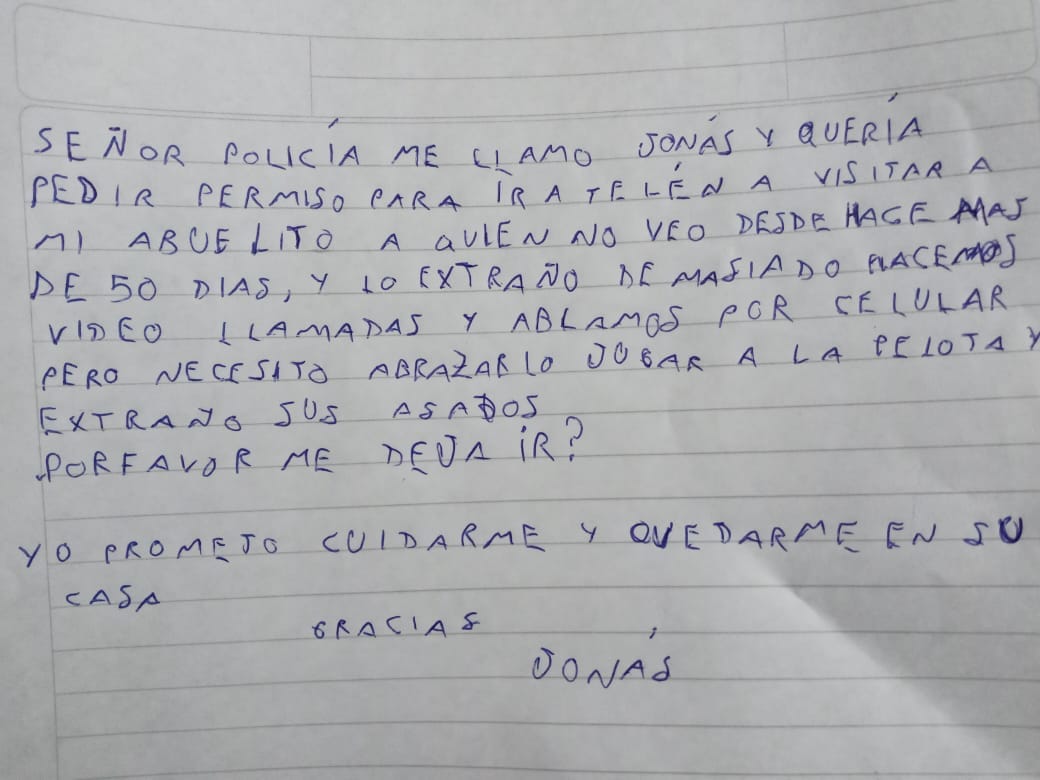 SEÑOR POLICÍA ME LLAMO JONÁS Y QUERÍA
PEDIR PERMISO PARA IR A TELÉN A VISITAR A
MI ABUELITO A QUIEN NO VEO DESDE HACE MAS
DE 50 DIAS, Y LO EXTRAÑO DEMASIADO HACEMOS
VIDEO LLAMADAS Y ABLAMOS POR CELULAR
PERO NECESITO ABRAZARLO JUGAR A LA PELOTA Y
EXTRAÑO SUS ASADOS
PORFAVOR ME DEJA IR?
YO PROMETO CUIDARME Y QUEDARME EN SU
CASA
GRACIAS
JONÁS